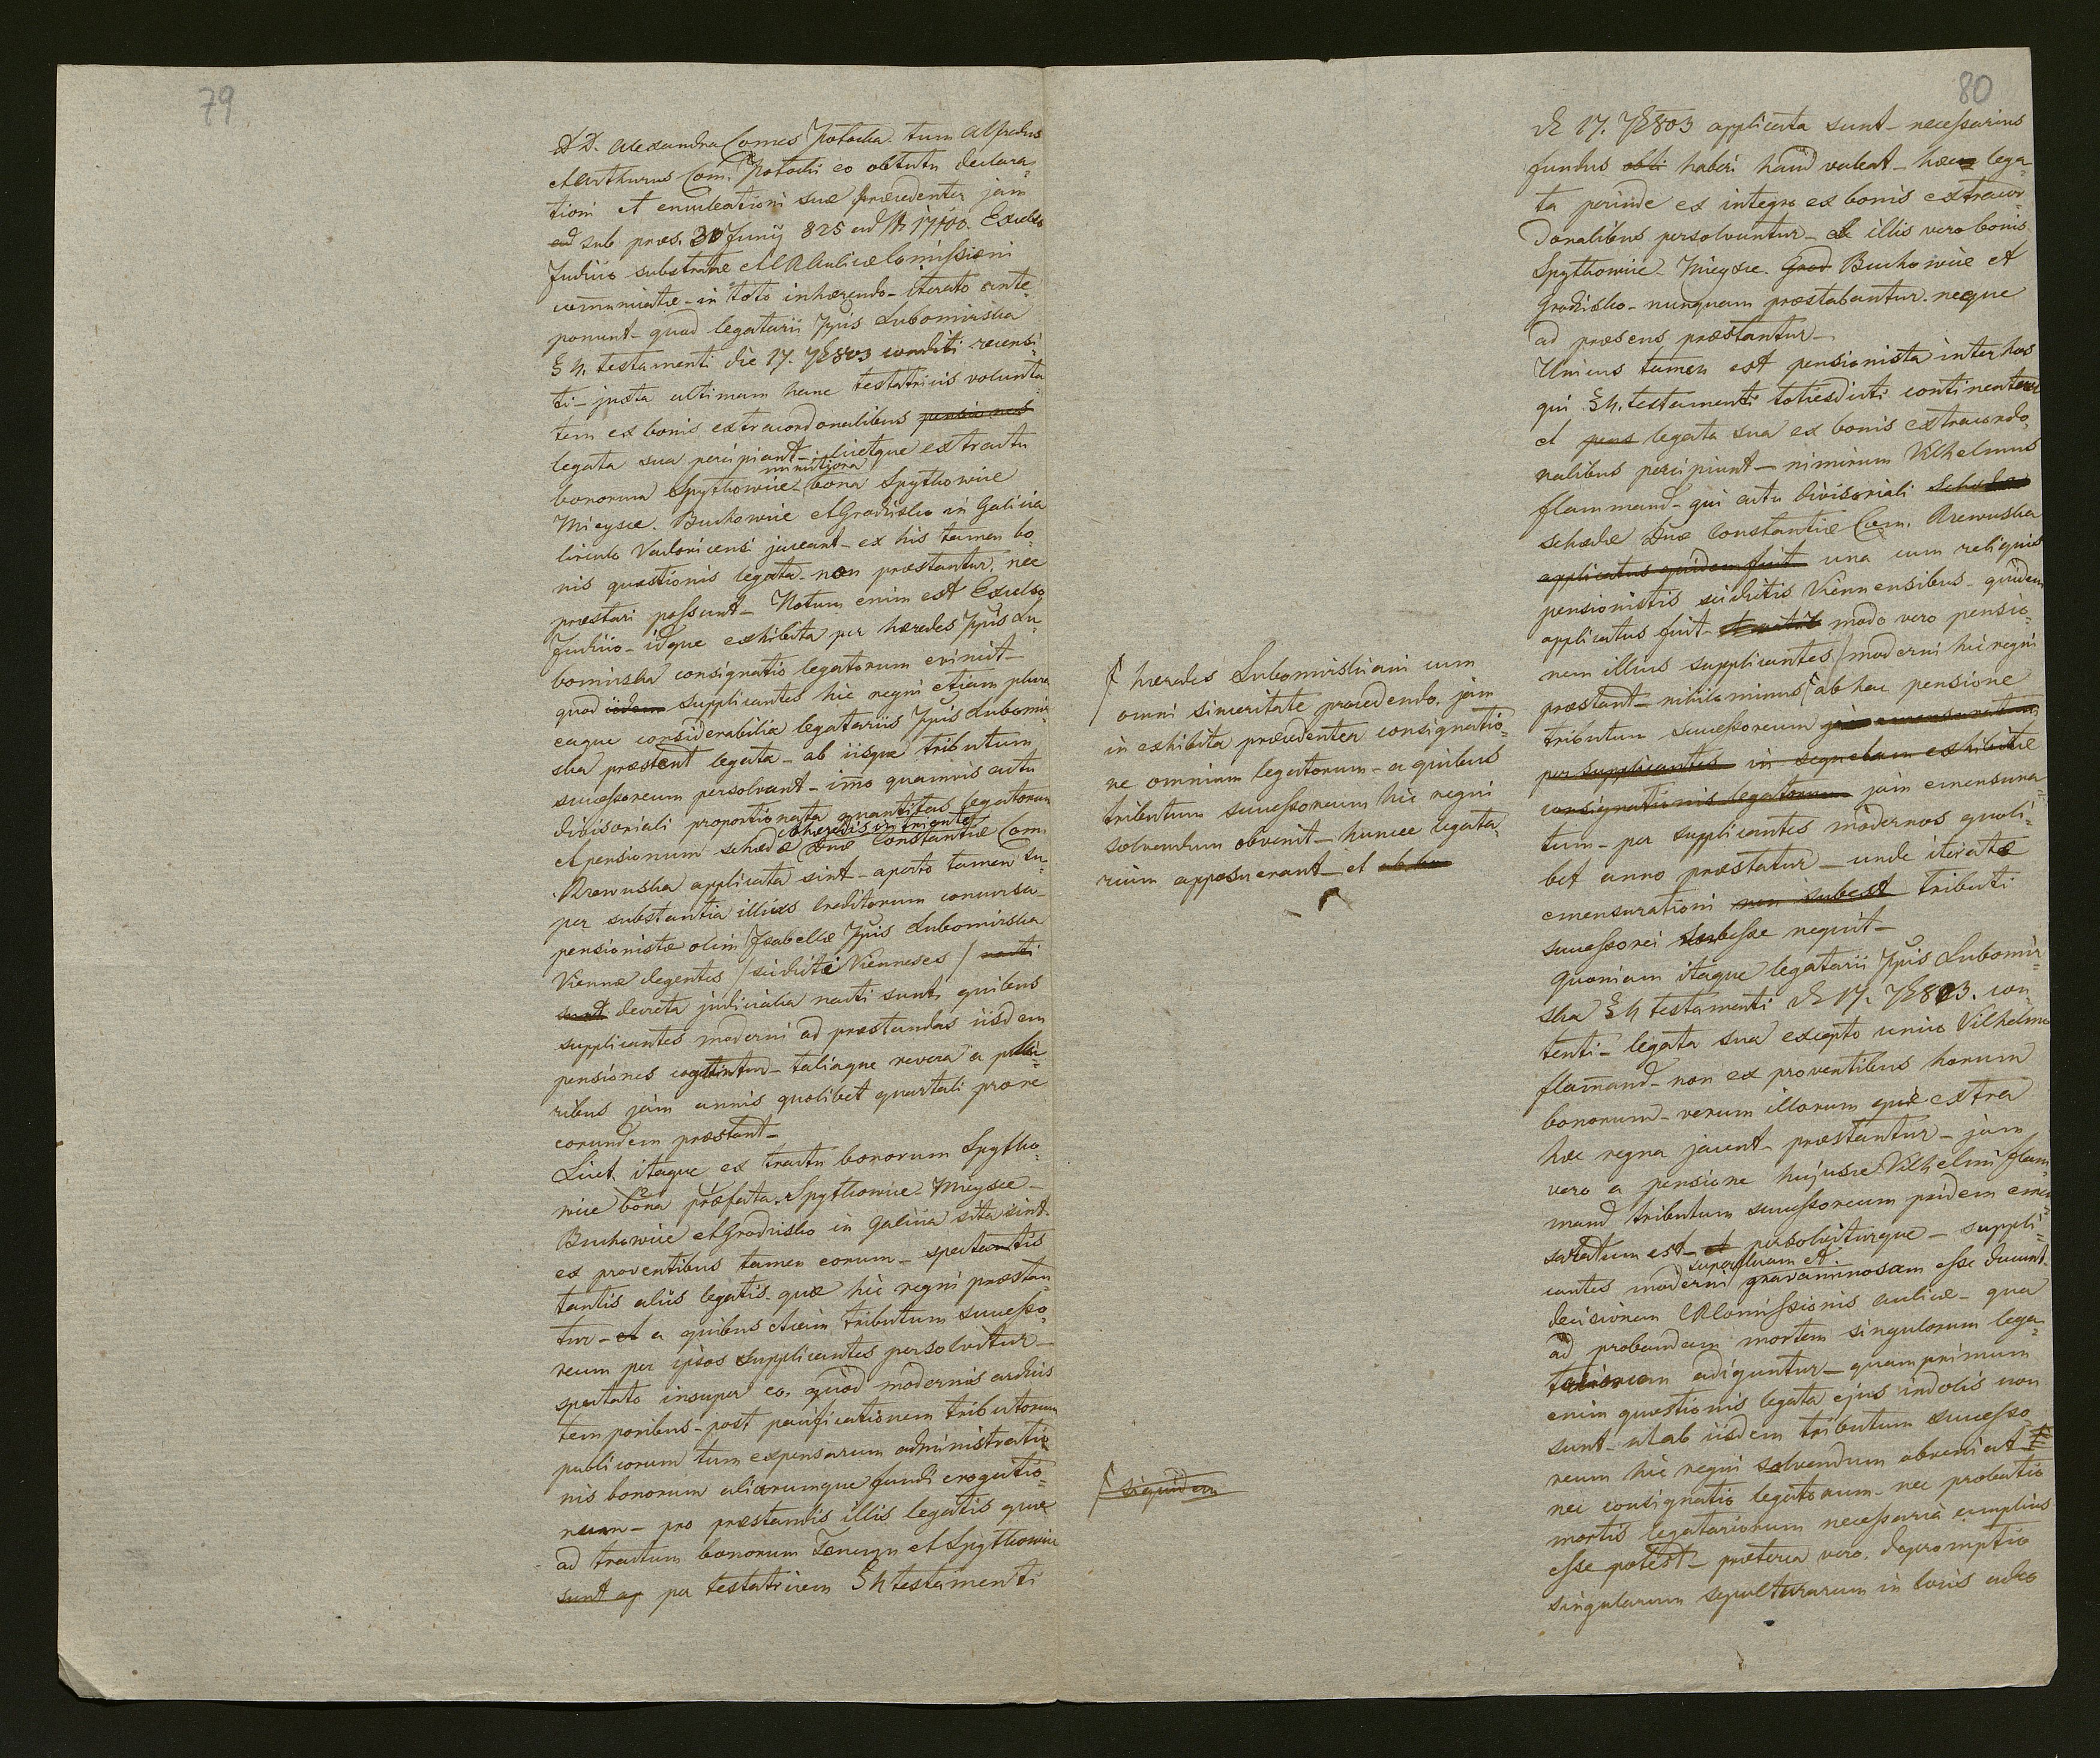 79
DD. Alexandra Comes Potocka tum Alfredus
et Arthurus Com. Potocki eo obtutu declara-
tioni et enucleationi suæ præcedenter jam
ad sub præs. 30 Junij 825 ad N 17100. Excelso
Judicio substratæ et CR Aulicæ Comissioni
comunicatæ - in toto inhærendo - iterato ante-
ponunt - quod legatarii Ppis Lubomirska
§ 4. testamenti die 17. 7b 803 conditi recensi-
ti - juxta ultimam hanc testatricis volunta-
tem ex bonis extracordonalibus pensiones
legata sua percipiant - licetque ex tractu
minutiora
bonorum Spytkowice - bona Spytkowice
Mieysce. Buchowice et Gradisko in Galicia
Circulo Vadovicensi jaceant - ex his tamen bo-
nis quæstionis legata - non præstantur, nec
præstari possunt - Notum enim est Excelso
Judicio - idque exhibita per hæredes Ppis Lu-
bomirska consignatio legatorum evincit -
quod iidem supplicantes hic regni etiam plura
eaque considerabilia legatariis Ppis Lubomir-
ska præstent legata - ab iisque tributum
successoreum persolvant - imo quamvis actu
divisoriali proportionata quantitas legatorum
cohæredis in triente
et pensionum schedæ Dnæ Constantiæ Com.
Rzewuska applicata sint - aperto tamen su-
per substantia illius Creditorum concursu -
pensionistæ olim Isabellæ Ppis Lubomirska
Viennæ degentes / sic dicti Viennenses / nacti
sunt decreta judicialia nacti sunt, quibus
supplicantes moderni ad præstandas iisdem
pensiones coguntur - taliaque revera a plu-
ribus jam annis quolibet quartali pro re
eorundem præstant -
Licet itaque ex tractu bonorum Spytko-
wice bona præfata. Spytkowice. Mieysce -
Buchowice et Gradisko in Galicia sita sint.
ex proventibus tamen eorum - spectatis
tantis aliis legatis. quæ hic regni præstan-
tur - et a quibus etiam tributum successo-
reum per ipsos supplicantes persolvitur -
spectato insuper eo, quod modernis arduis
temporibus - post pacificationem tributorum
publicorum tum expensarum administratio-
nis bonorum aliarumque fundi erogatio-
num - pro præstandis illis legatis quæ
ad tractum bonorum Tenczyn et Spytkowice
sunt ap per testatricem § 4 testamenti
hæredes Lubomirskiani cum
omni sinceritate procedendo. jam
in exhibita præcedenter consignatio-
ne omnium legatorum - a quibus
tributum successoreum hic regni
solvendum obvenit - huncce legata-
rium apposuerant - et ab hac
siquidem
80
de 17. 7b 803 applicata sunt - necessarius
fundus obti haberi haud valeat - hæc lega-
ta perinde ex integro ex bonis extracor-
donalibus persolvuntur - ex illis vero bonis
Spytkowice. Mieysce. Grod Buchowice et
Gradisko - nunquam præstabantur. neque
ad præsens præstantur -
Unicus tamen est pensionista inter hos
qui § 4. testamenti totiesdicti continentur
et pens legata sua ex bonis extracordo-
nalibus percipiunt - nimirum Vilhelmus
Flammand - qui actu divisoriali Schedæ
schedæ Dnæ Constantiæ Com. Rzewuska
applicatus quidem fuit una cum reliquis
pensionistis sic dictis Viennensibus - quidem
applicatus fuit - modo vero pensio-
nem illius supplicantes / moderni hic regni
præstant - nihilominus ab hac pensione
tributum successoreum jam emensuratum
per supplicantes in sequelam exhibitæ
consignationis legatorum jam emensura-
tum - per supplicantes modernos quoli-
bet anno præstatur - unde iteratæ
emensurationi non subest tributi
successorei subesse nequit -
Quoniam itaque legatarii Ppis Lubomir-
ska § 4 testamenti de 17. 7b 803. con-
tenti - legata sua excepto unico Vilhelmo
Flamand - non ex proventibus horum
bonorum - verum illorum quæ extra
hæc regna jacent - præstantur - jam
vero a pensione hujusce Vilhelmi Flam-
mand tributum successoreum pridem emen-
suratum est - et persolviturque - suppli-
superfluam et
cantes moderni gravaminosam esse ducunt
decisionem CR Comissionis aulicæ - qua
ad probandam mortem singulorum lega-
tariorum adiguntur - quamprimum
enim quæstionis legata ejus indolis non
sunt - ut ab iisdem tributum successo-
reum hic regni solvendum obveniat
nec consignatio legatorum - nec probatio
mortis legatariorum necessaria amplius
esse potest - præterea vero. depromptio
singularum sepulturarum in locis adeo